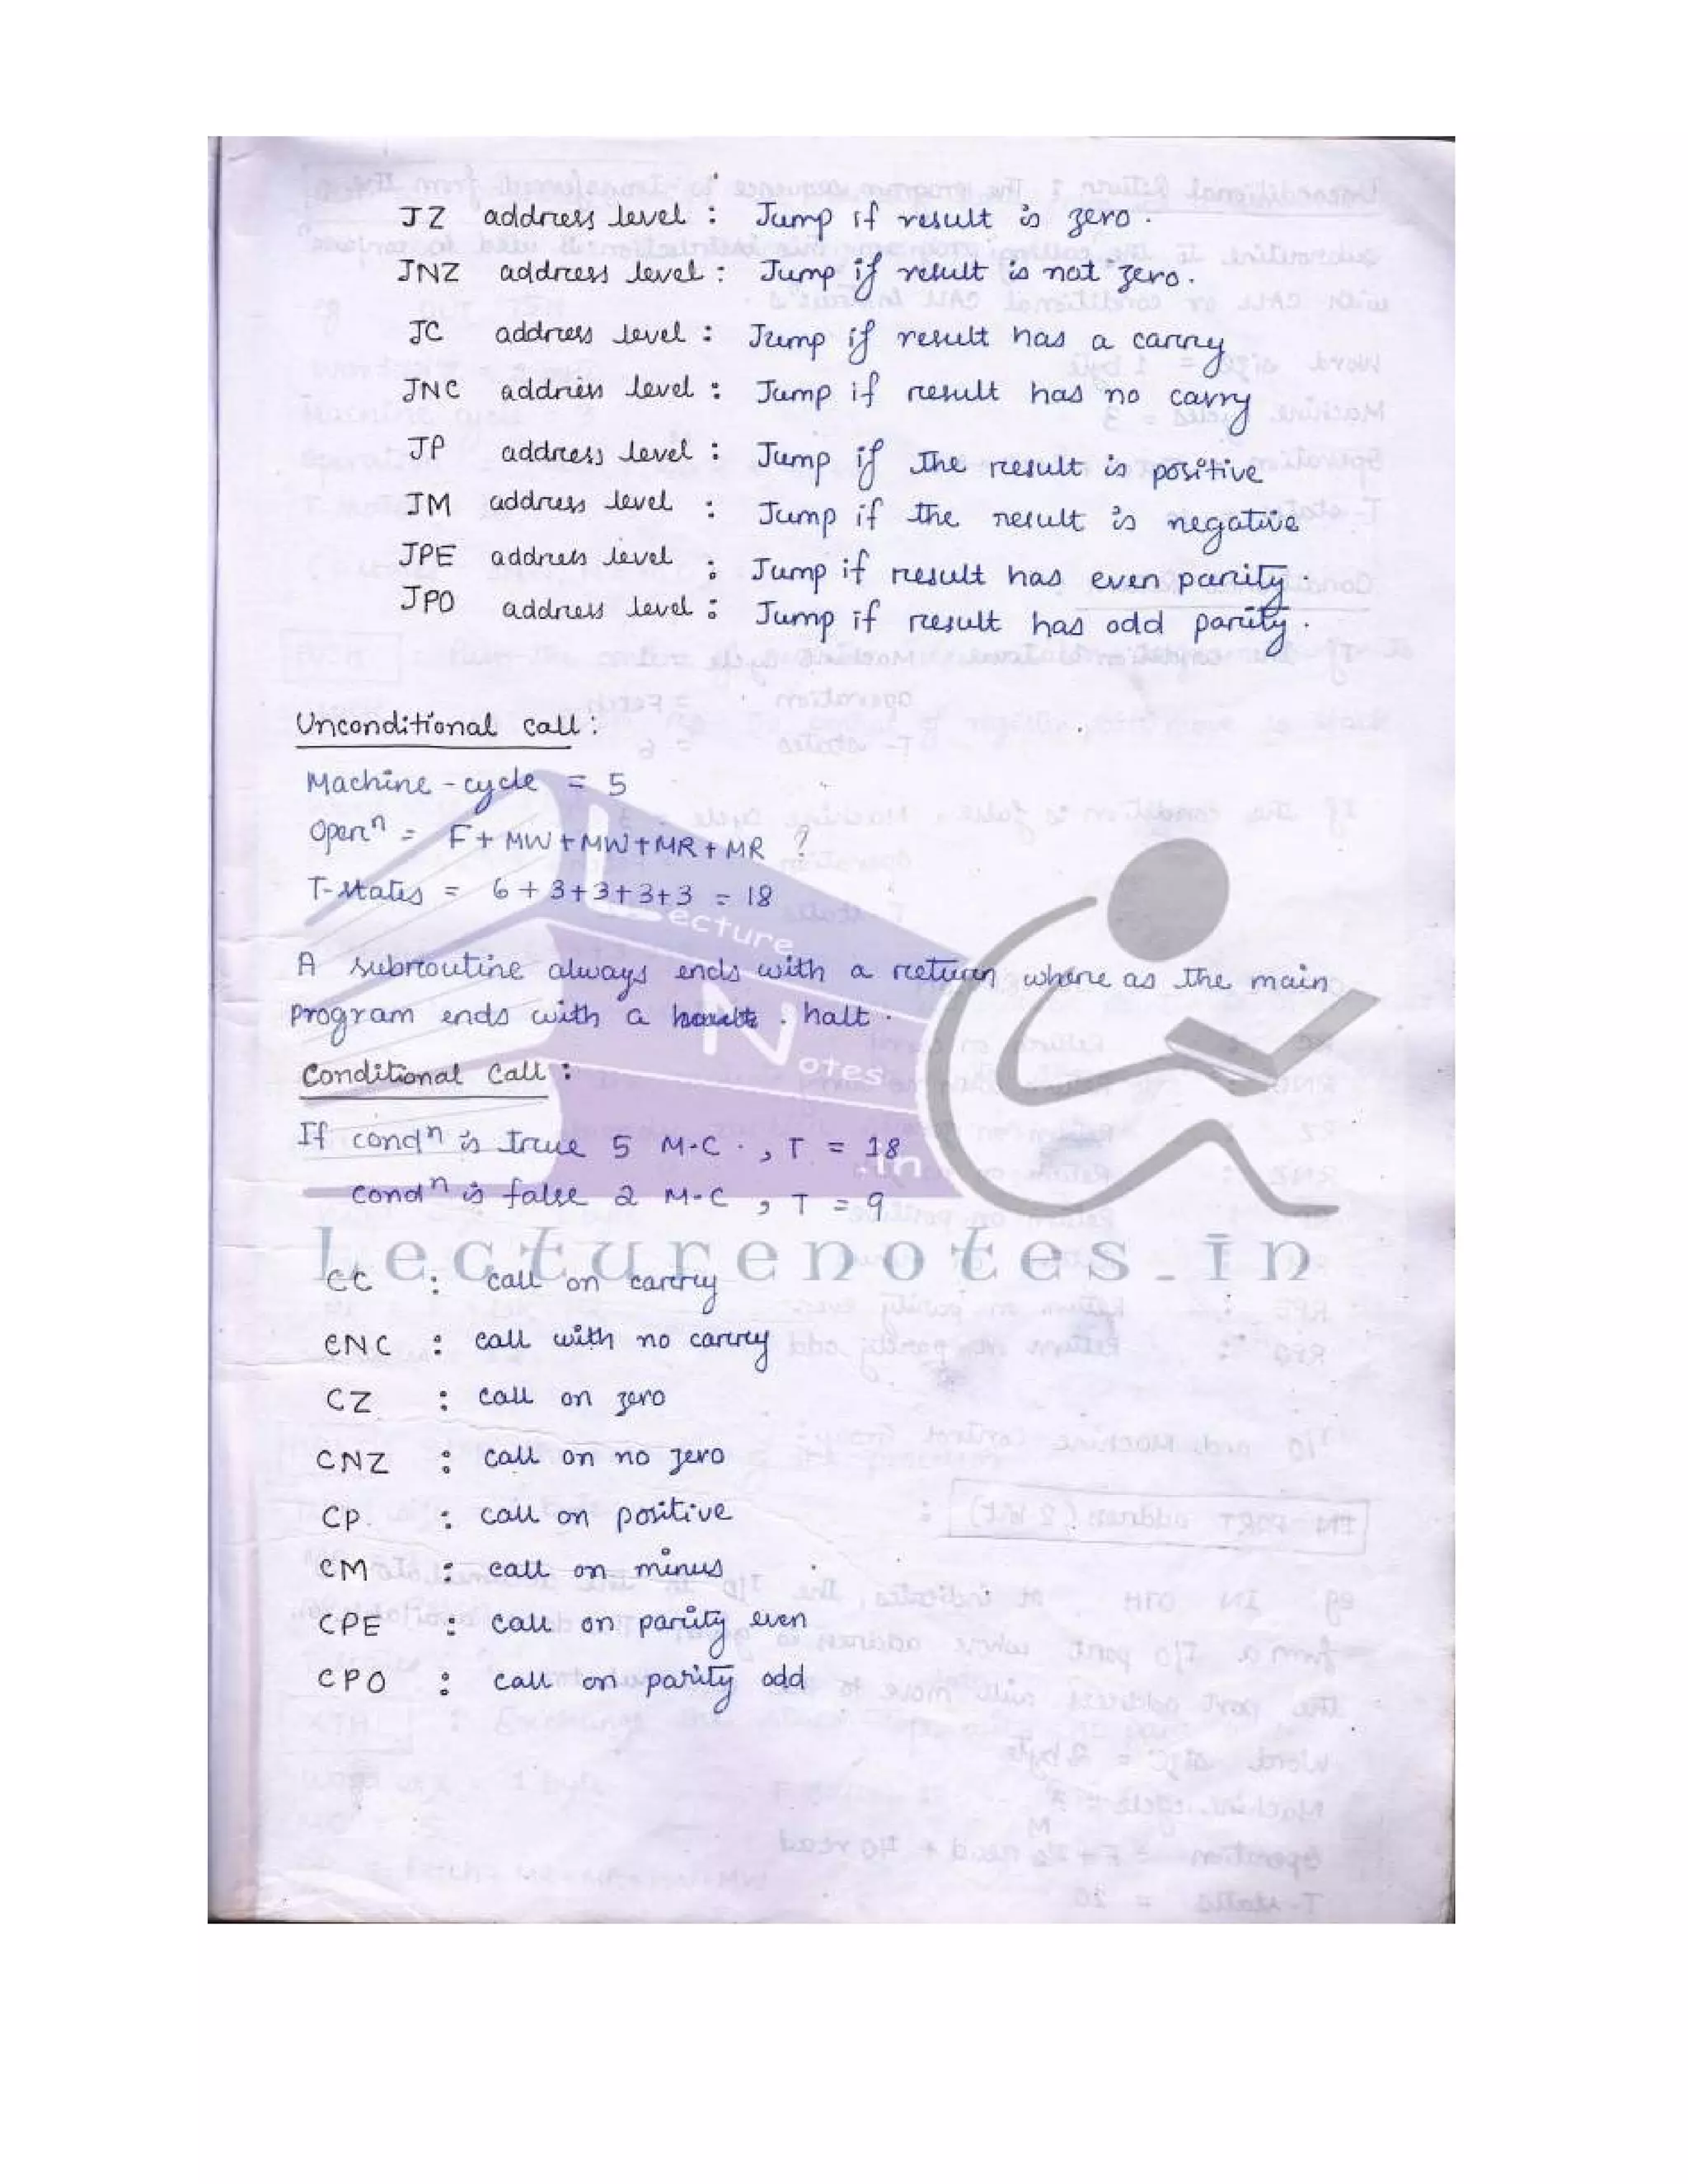 JZ address level : Jump if result is zero.
JNZ address level : Jump if result is not zero.
JC address level : Jump if result has a carry
JNC address level : Jump if result has no carry
JP address level : Jump if the result is positive
JM address level : Jump if the result is negative
JPE address level : Jump if result has even parity.
JPO address level : Jump if result has odd parity.
Unconditional call :
Machine - cycle = 5
Opern = F + MW + MW + MR + MR ?
T-states = 6 + 3 + 3 + 3 + 3 = 18
A subroutine always ends with a return where as the main
program ends with a halt.
Conditional Call :
If condn is true 5 M-C., T = 18
condn is false 2 M-C, T = 9
Lecture Notes .in
Lecturenotes.in
CC : call on carry
CNC : call with no carry
CZ : call on zero
CNZ : call on no zero
CP : call on positive
CM : call on minus
CPE : call on parity even
CPO : call on parity odd